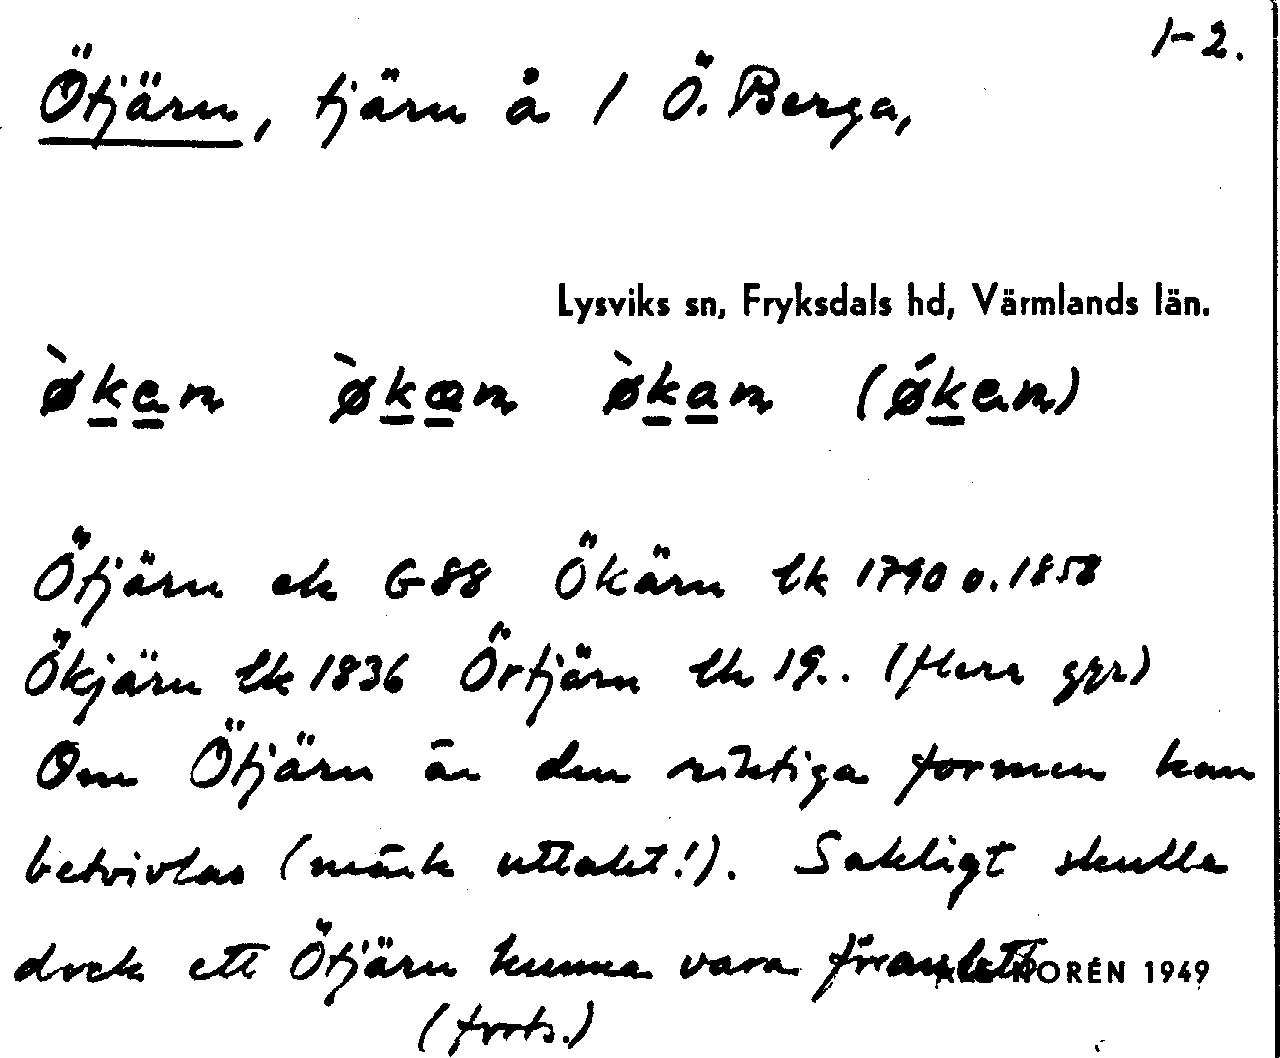 1-2.
Ötjärn, tjärn å 1 Ö. Berga,
Lysviks sn, Fryksdals hd, Värmlands län.
ø̀kan ø̀kæn ø̀kan (ǿkan)
Ötjärn ek G88 Ökärn lk 1790 o. 1858
Ökjärn lk 1836 Örtjärn lk 19.. (flera ggr)
Om Ötjärn är den riktiga formen kan
betvivlas (märk uttalet!). Sakligt skulle
dock ett Ötjärn kunna vara föranlett
NORÉN 1949
(forts.)